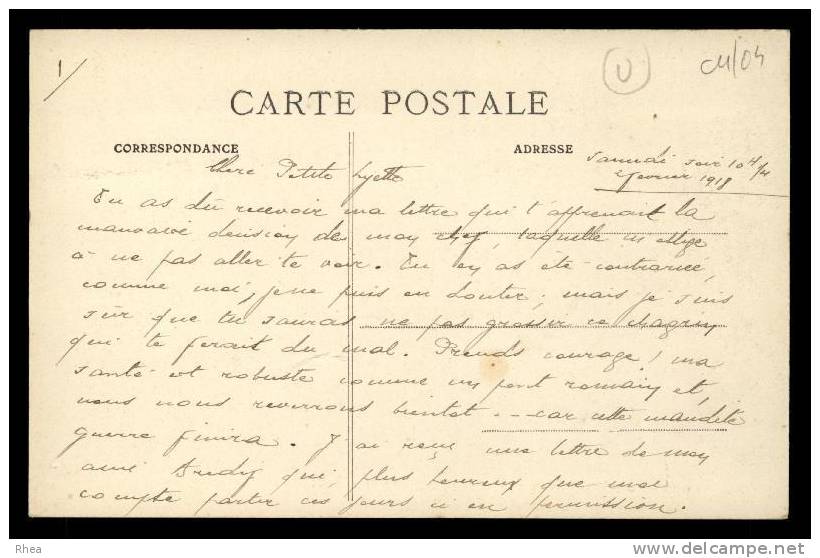 1/
U
CM/04
CARTE POSTALE
CORRESPONDANCE
ADRESSE
Samedi soir 10 H 1/4
2 fevrier 1918
Chère Petite Lyette
Tu as dû recevoir ma lettre qui t'apprenait la
mauvaise decision de mon chef, laquelle m'oblige
à ne pas aller te voir. Tu en as été contrariée,
comme moi, je ne puis en douter; mais je suis
sûr que tu sauras ne pas grossir ce chagrin
qui te ferait du mal. Prends courage! ma
santé est robuste comme un pont romain et,
nous nous reverrons bientot... car cette maudite
guerre finira. J'ai reçu une lettre de mon
ami qui, plus heureux que moi
compte partir ces jours ci en permission.
Rhea
www.delcampe.net